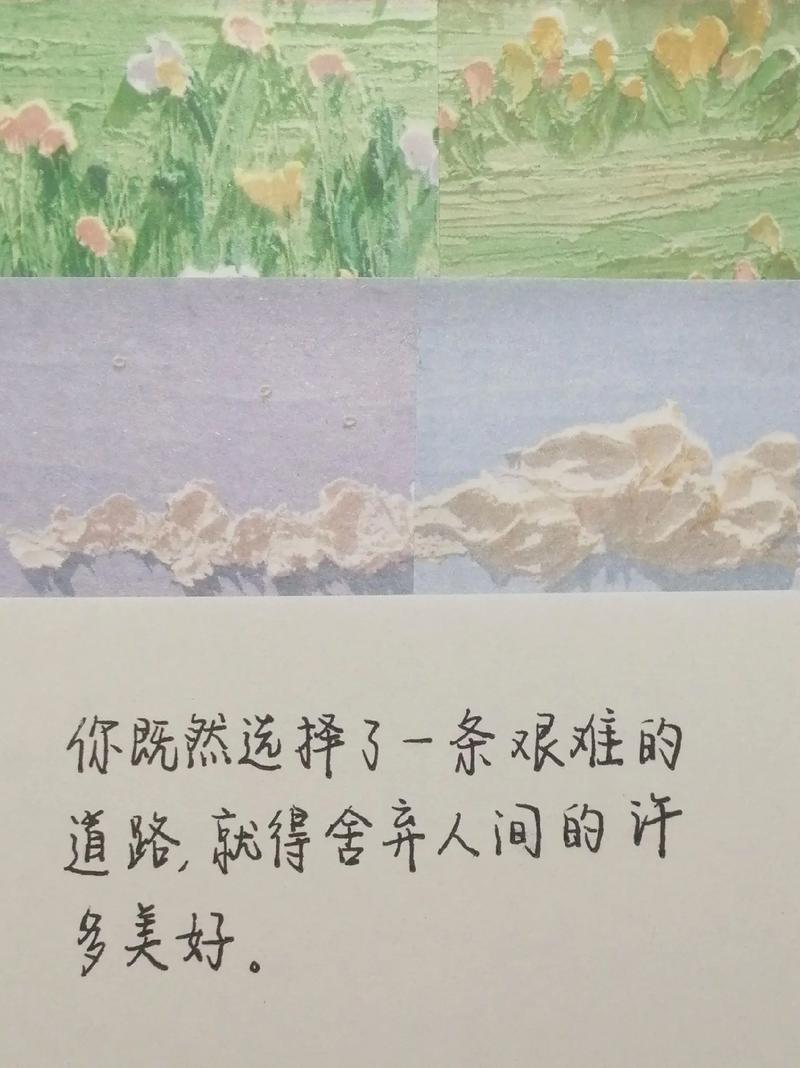 你既然选择了一条艰难的
道路,就得舍弃人间的许
多美好。